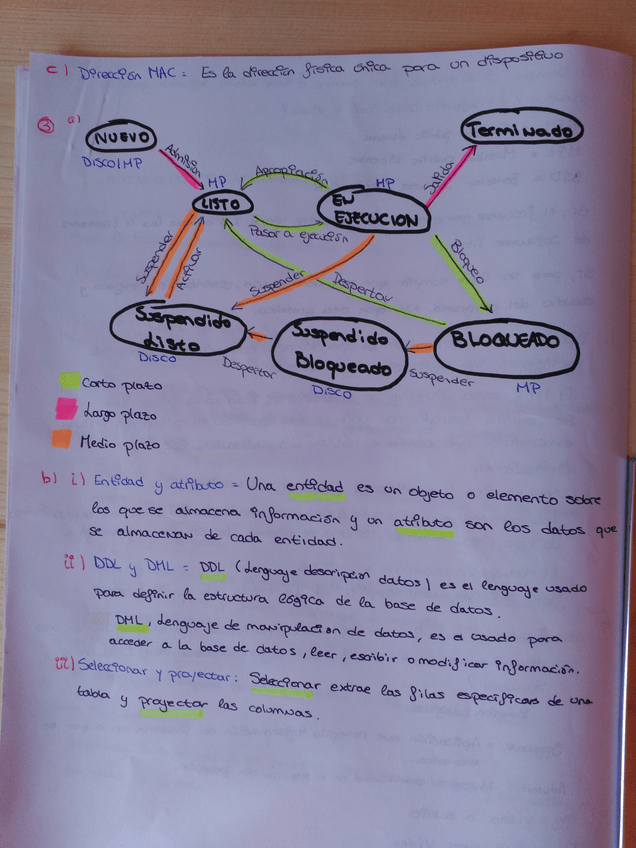 c) Dirección MAC = Es la dirección física única para un dispositivo
3 a)
NUEVO
DISCO/MP
Admisión
MP
LISTO
Apropiación
Pasar a ejecución
MP
EN
EJECUCION
Salida
Terminado
Bloqueo
Suspender
Activar
Suspender
Despertar
Suspendido
Listo
DISCO
Despertar
Suspendido
Bloqueado
DISCO
Suspender
BLOQUEADO
MP
Corto plazo
Largo plazo
Medio plazo
b) i) Entidad y atributo = Una entidad es un objeto o elemento sobre
los que se almacena información y un atributo son los datos que
se almacenan de cada entidad.
ii) DDL y DML = DDL (Lenguaje descripción datos) es el lenguaje usado
para definir la estructura lógica de la base de datos.
DML, Lenguaje de manipulación de datos, es el usado para
acceder a la base de datos, leer, escribir o modificar información.
iii) Seleccionar y proyectar: Seleccionar extrae las filas específicas de una
tabla y proyectar las columnas.